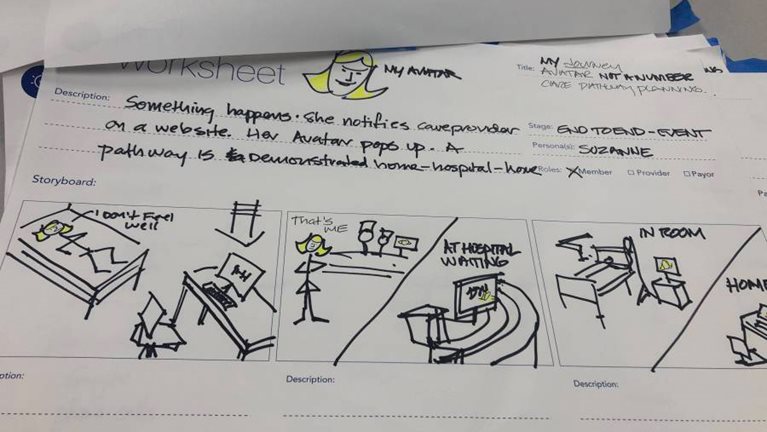 Worksheet
MY AVATAR
Title: MY JOURNEY
AVATAR NOT A NUMBER
CARE PATHWAY PLANNING.
Description: Something happens. She notifies careprovider
on a website. Her Avatar pops up. A
pathway is Demonstrated home-hospital-home
Stage: END TO END - EVENT
Persona(s): SUZANNE
Roles: Member Provider Payor
Storyboard:
I DON'T Feel
well
THAT'S
ME
AT HOSPITAL
WAITING
IN ROOM
HOME
Description:
Description: